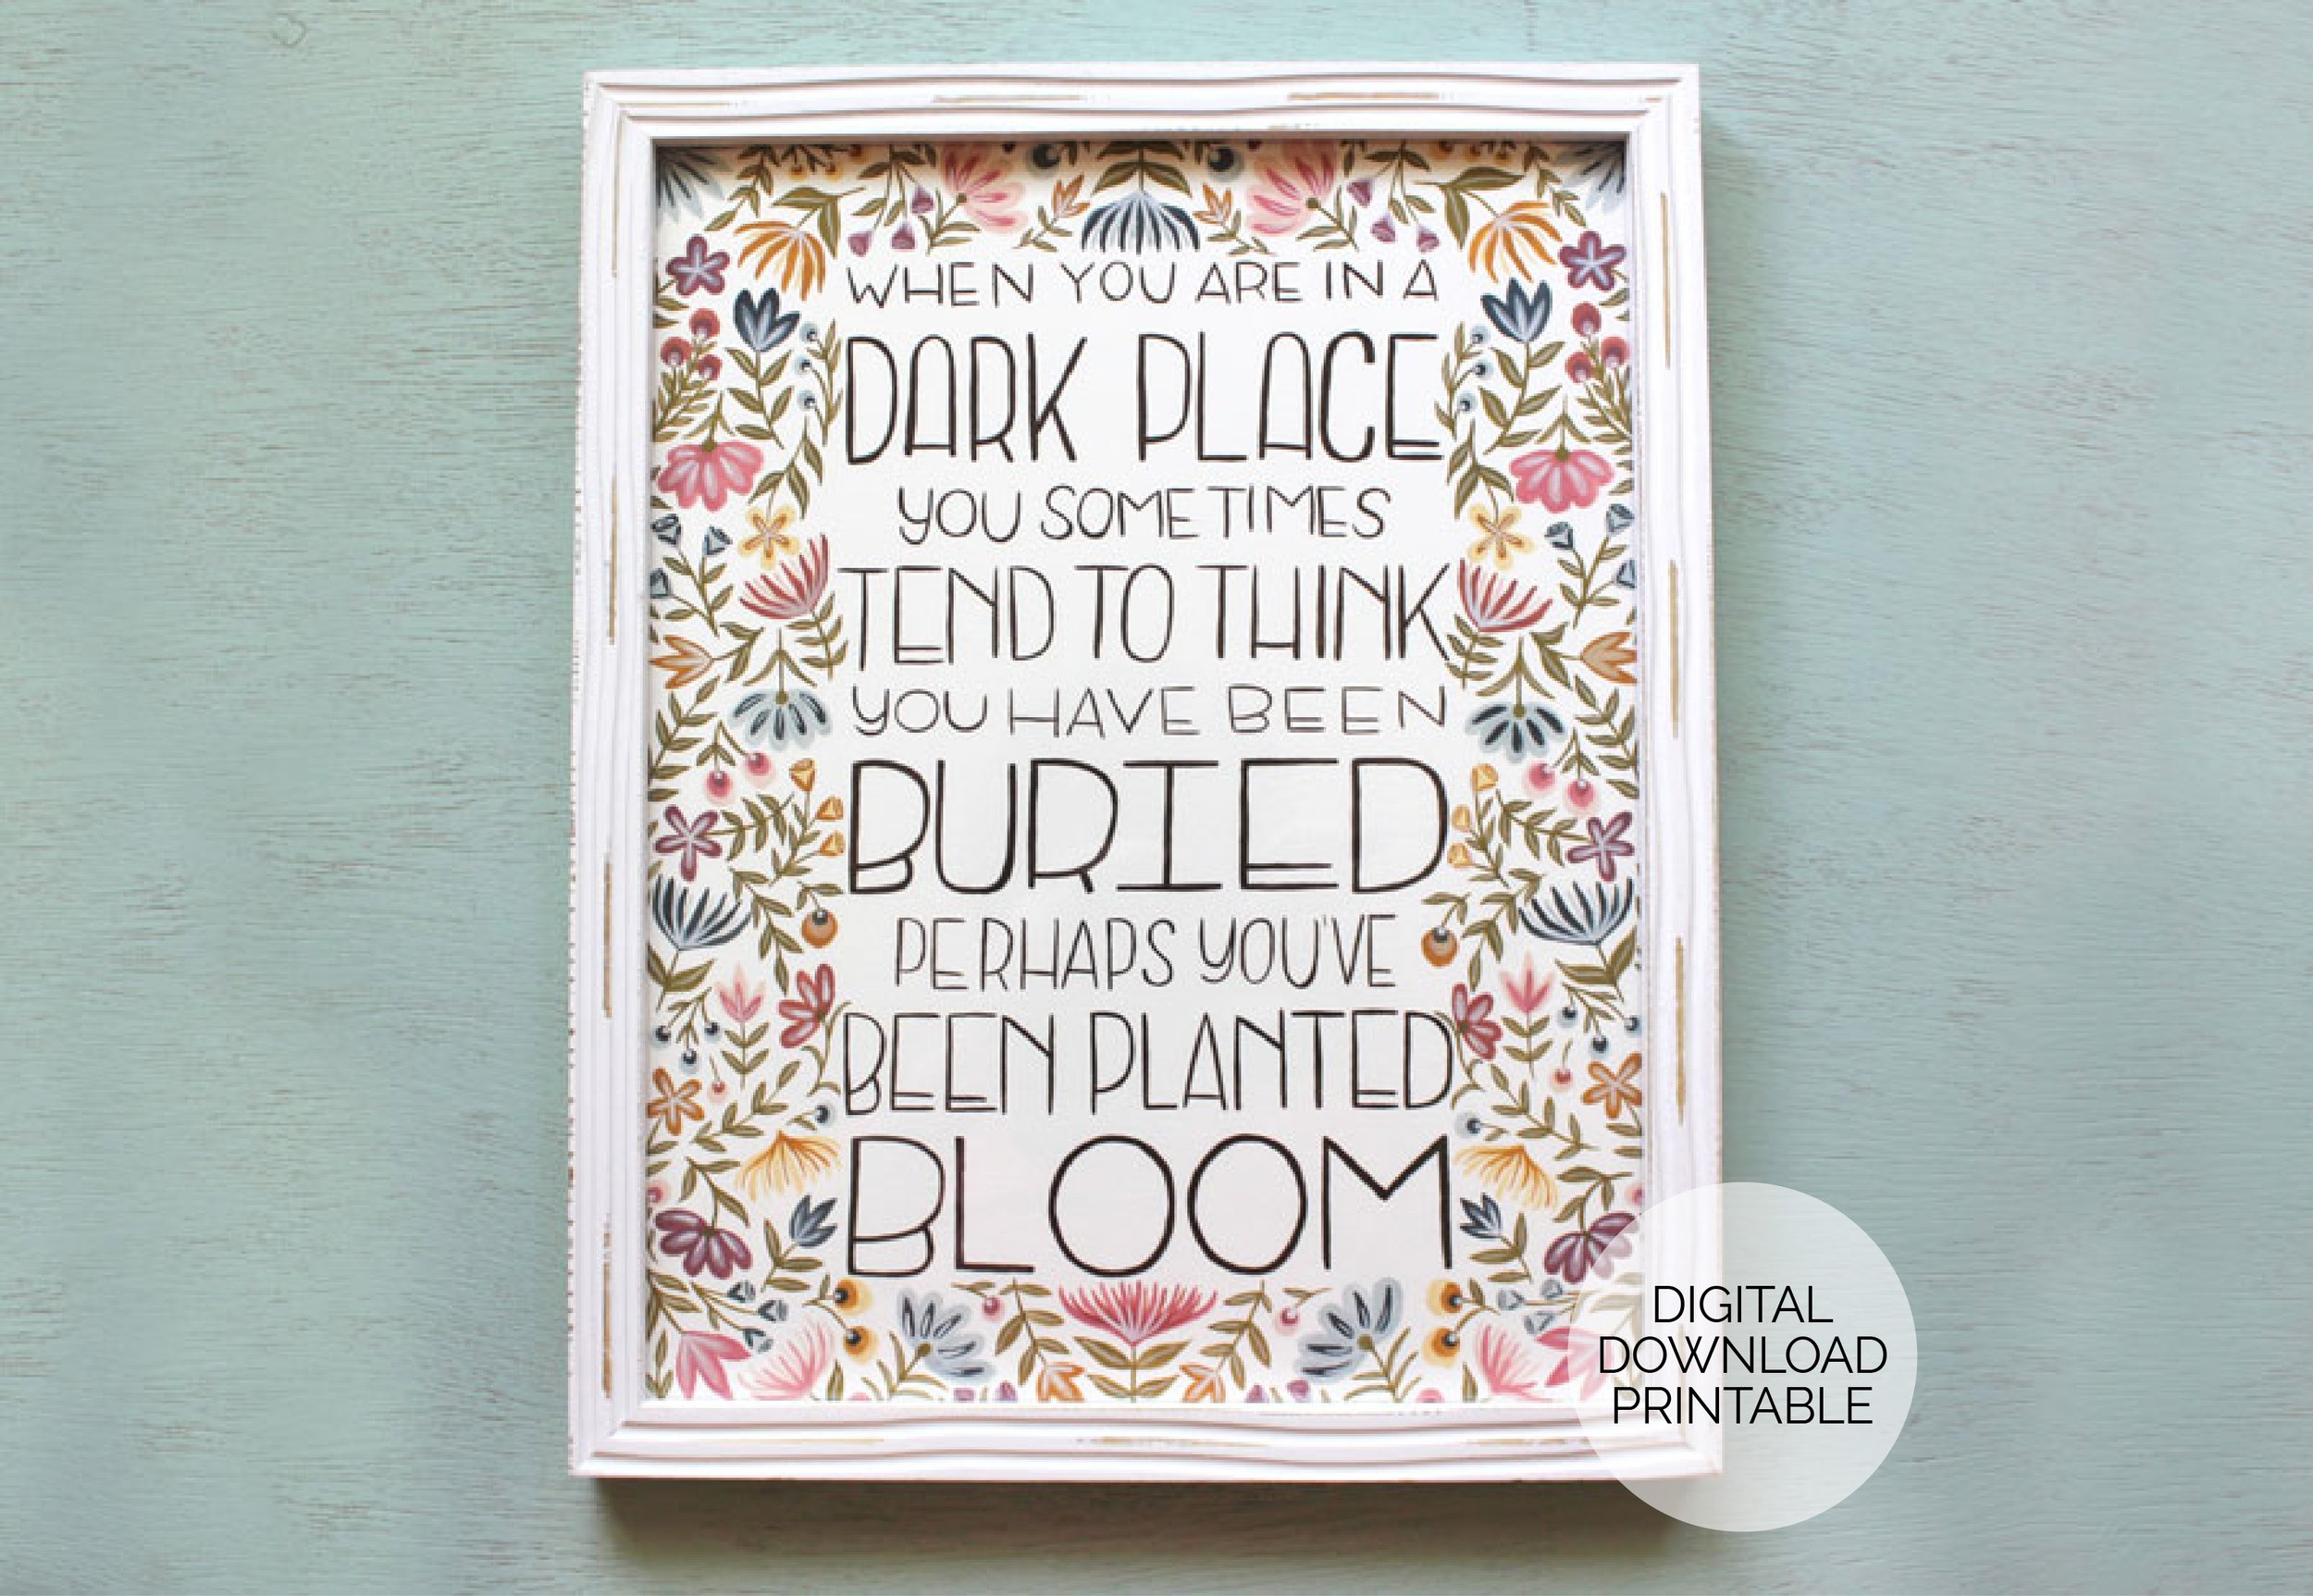 WHEN YOU ARE IN A
DARK PLACE
YOU SOMETIMES
TEND TO THINK
YOU HAVE BEEN
BURIED
PERHAPS YOU'VE
BEEN PLANTED
BLOOM
DIGITAL
DOWNLOAD
PRINTABLE